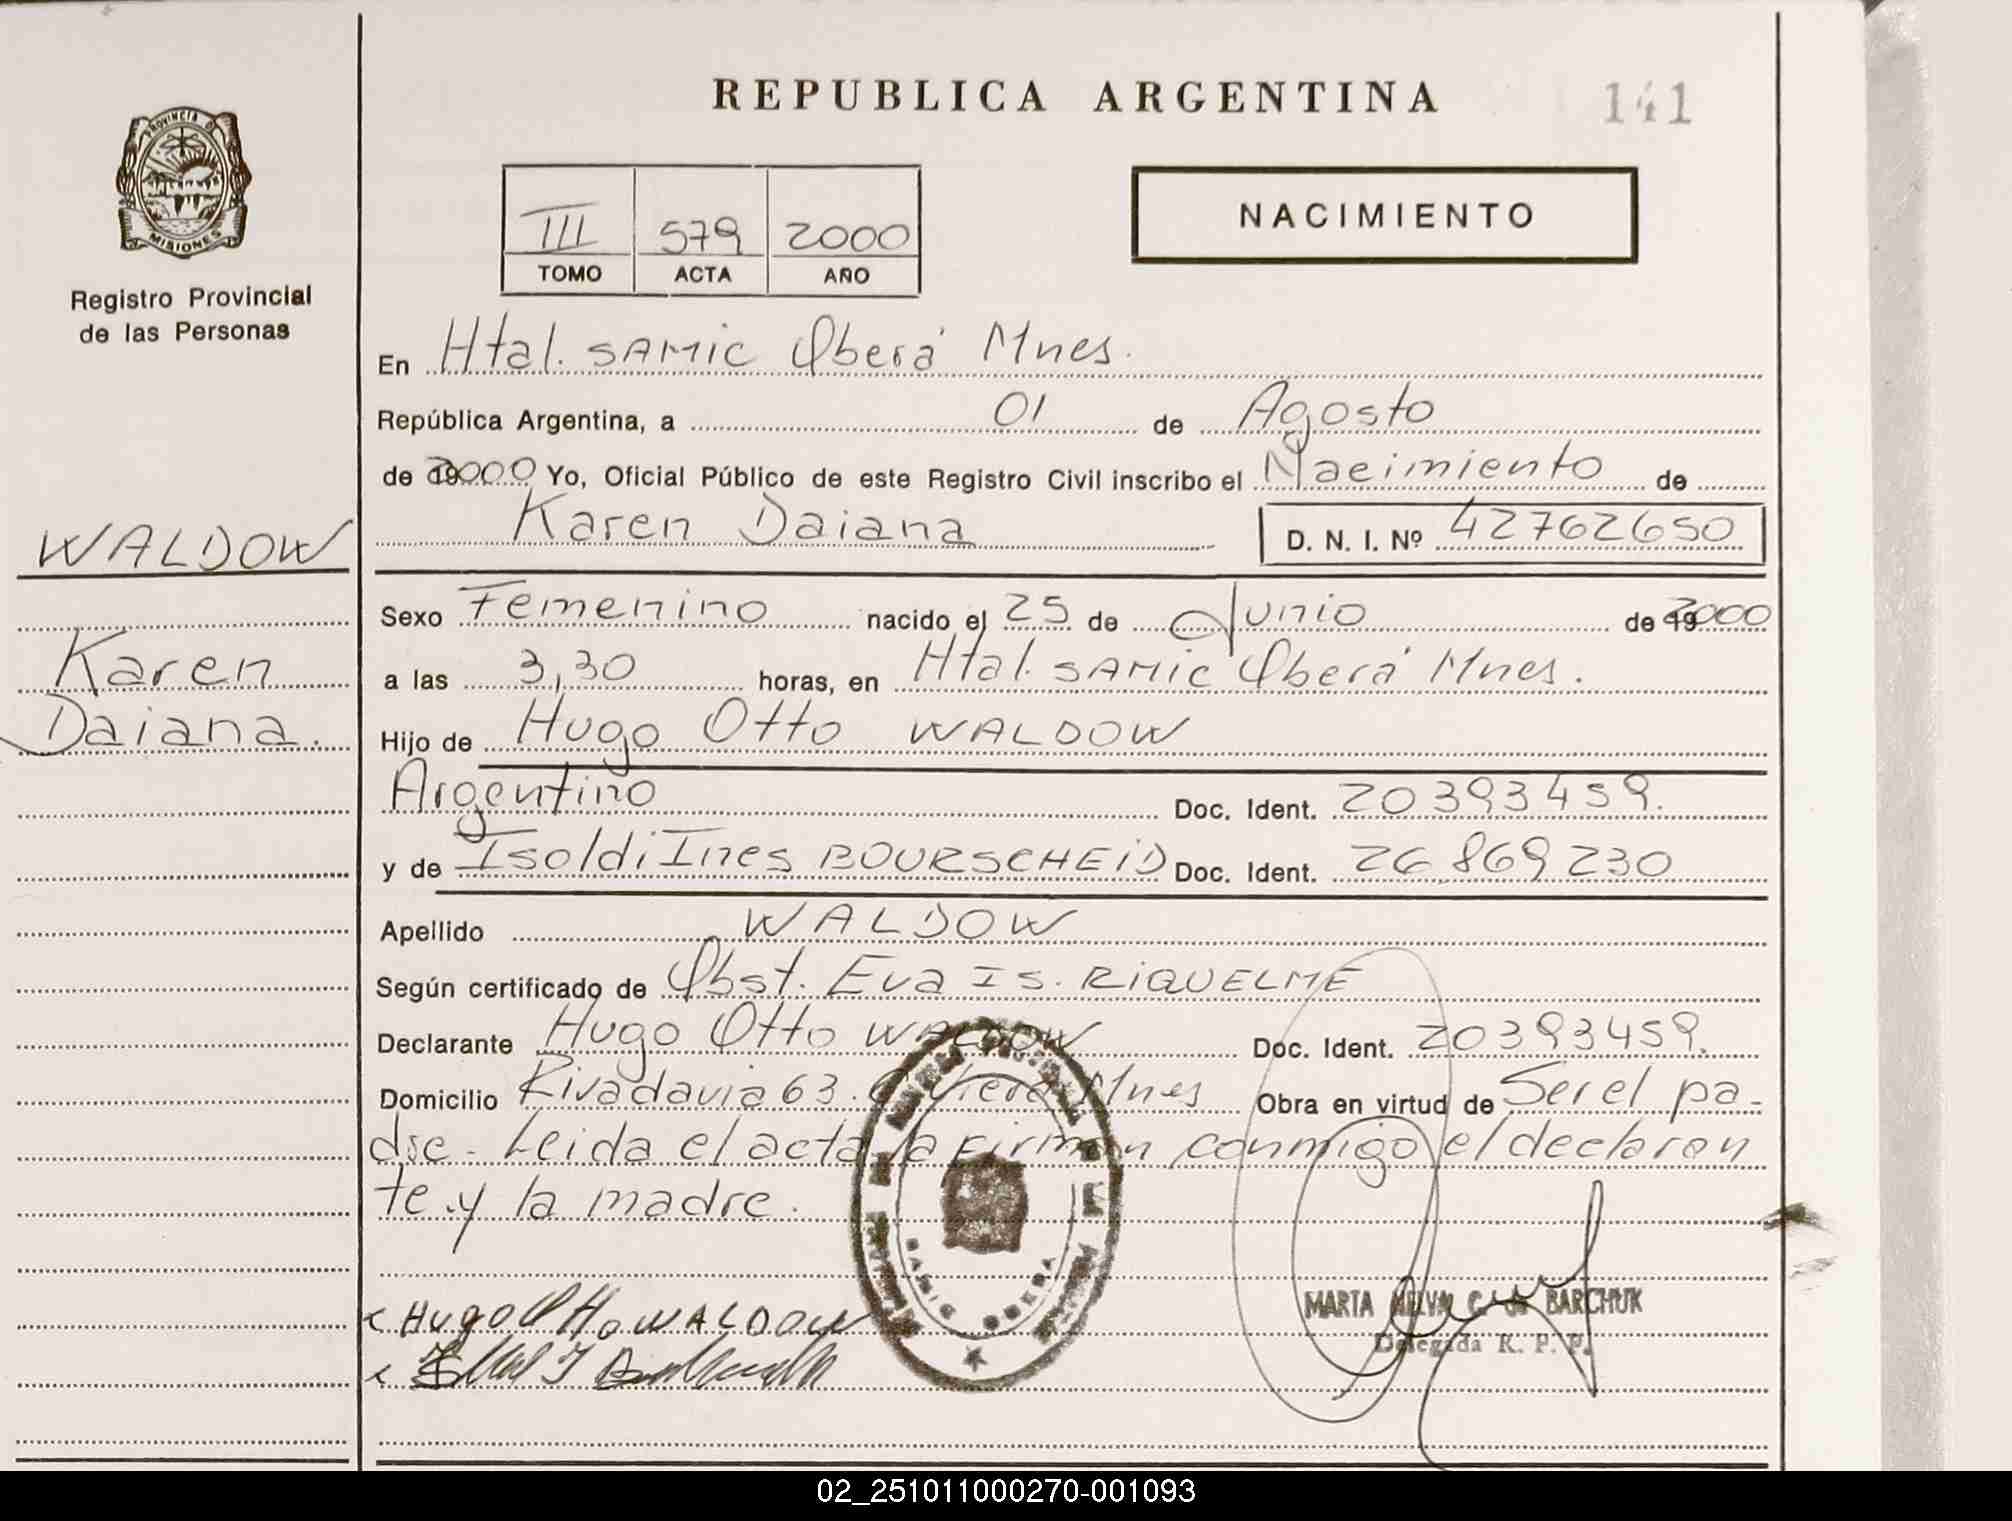 REPUBLICA ARGENTINA
141
PROVINCIA DE
MISIONES
Registro Provincial
de las Personas
III 579 2000
TOMO ACTA AÑO
NACIMIENTO
En Htal. SAMIC Oberá Mnes.
República Argentina, a 01 de Agosto
de 2000 Yo, Oficial Público de este Registro Civil inscribo el Nacimiento de
Karen Daiana D. N. I. Nº 42762650
WALDOW
Karen
Daiana.
Sexo Femenino nacido el 25 de Junio de 2000
a las 3,30 horas, en Htal. SAMIC Oberá Mnes.
Hijo de Hugo Otto WALDOW
Argentino Doc. Ident. 20393459.
y de Isoldi Ines BOURSCHEID Doc. Ident. 26.869230
Apellido WALDOW
Según certificado de Obst. Eva IS. RIQUELME
Declarante Hugo Otto WALDOW Doc. Ident. 20393459.
Domicilio Rivadavia 63. Mnes Obra en virtud de Ser el pa-
dre. Leida el acta la firman conmigo el declaran
te y la madre.
Hugo Otto WALDOW
SAMIC OBERA
MARTA C. de BARCHUK
Delegada R. P. P.
02_251011000270-001093